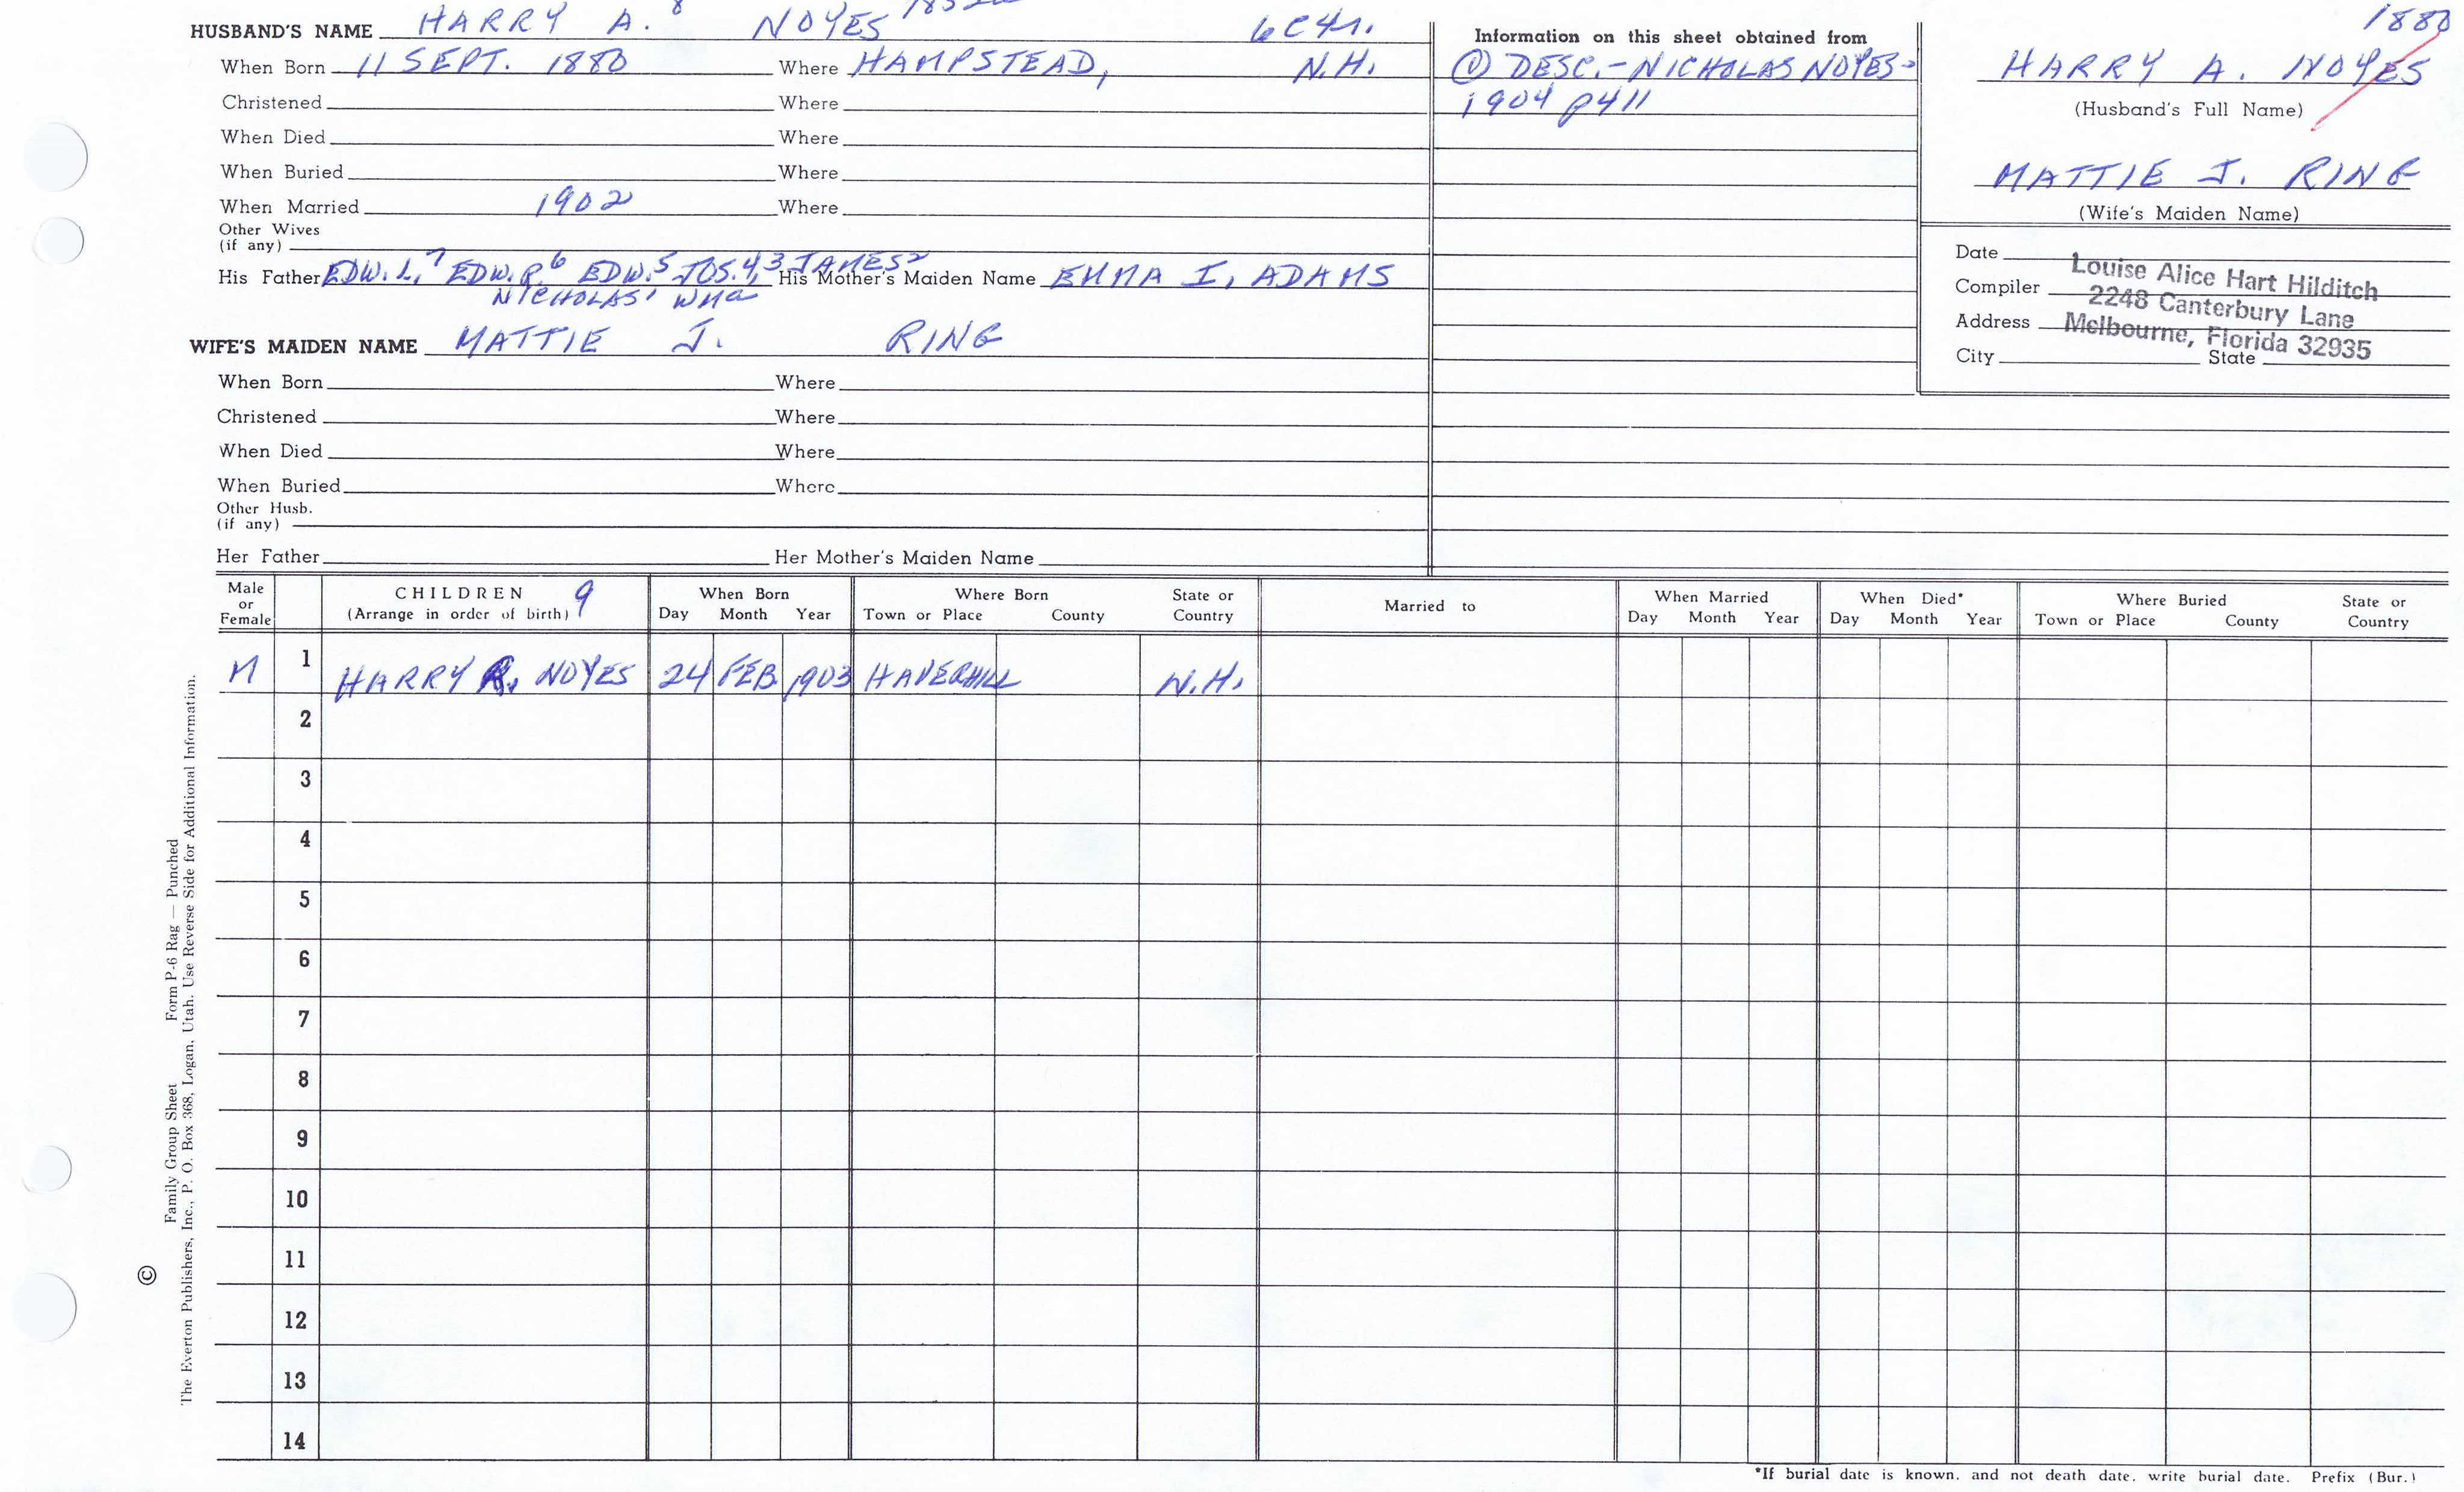 HUSBAND'S NAME HARRY A. 8 NOYES 6C4r. Information on this sheet obtained from 1880
When Born 11 SEPT. 1880 Where HAMPSTEAD, N.H. ① DESC.-NICHOLAS NOYES- HARRY A. NOYES
Christened Where 1904 p411 (Husband's Full Name)
When Died Where
When Buried Where MATTIE J. RING
When Married 1902 Where (Wife's Maiden Name)
Other Wives
(if any) Date
His Father EDW. L.7 EDW. R.6 EDW.5 JOS.4,3 JAMES2 His Mother's Maiden Name EMMA I. ADAMS
NICHOLAS1 WMa
Louise Alice Hart Hilditch
Compiler 2248 Canterbury Lane
Address Melbourne, Florida 32935
City State
WIFE'S MAIDEN NAME MATTIE J. RING
When Born Where
Christened Where
When Died Where
When Buried Where
Other Husb.
(if any)
Her Father Her Mother's Maiden Name
Male or Female CHILDREN 9 (Arrange in order of birth) When Born Day Month Year Where Born Town or Place County State or Country Married to When Married Day Month Year When Died* Day Month Year Where Buried Town or Place County State or Country
M 1 HARRY R. NOYES 24 FEB. 1903 HAVERHILL N.H.
2
3
4
5
6
7
8
9
10
11
12
13
14
*If burial date is known, and not death date, write burial date. Prefix (Bur.)
© Family Group Sheet Form P-6 Rag — Punched
The Everton Publishers, Inc., P. O. Box 368, Logan, Utah. Use Reverse Side for Additional Information.